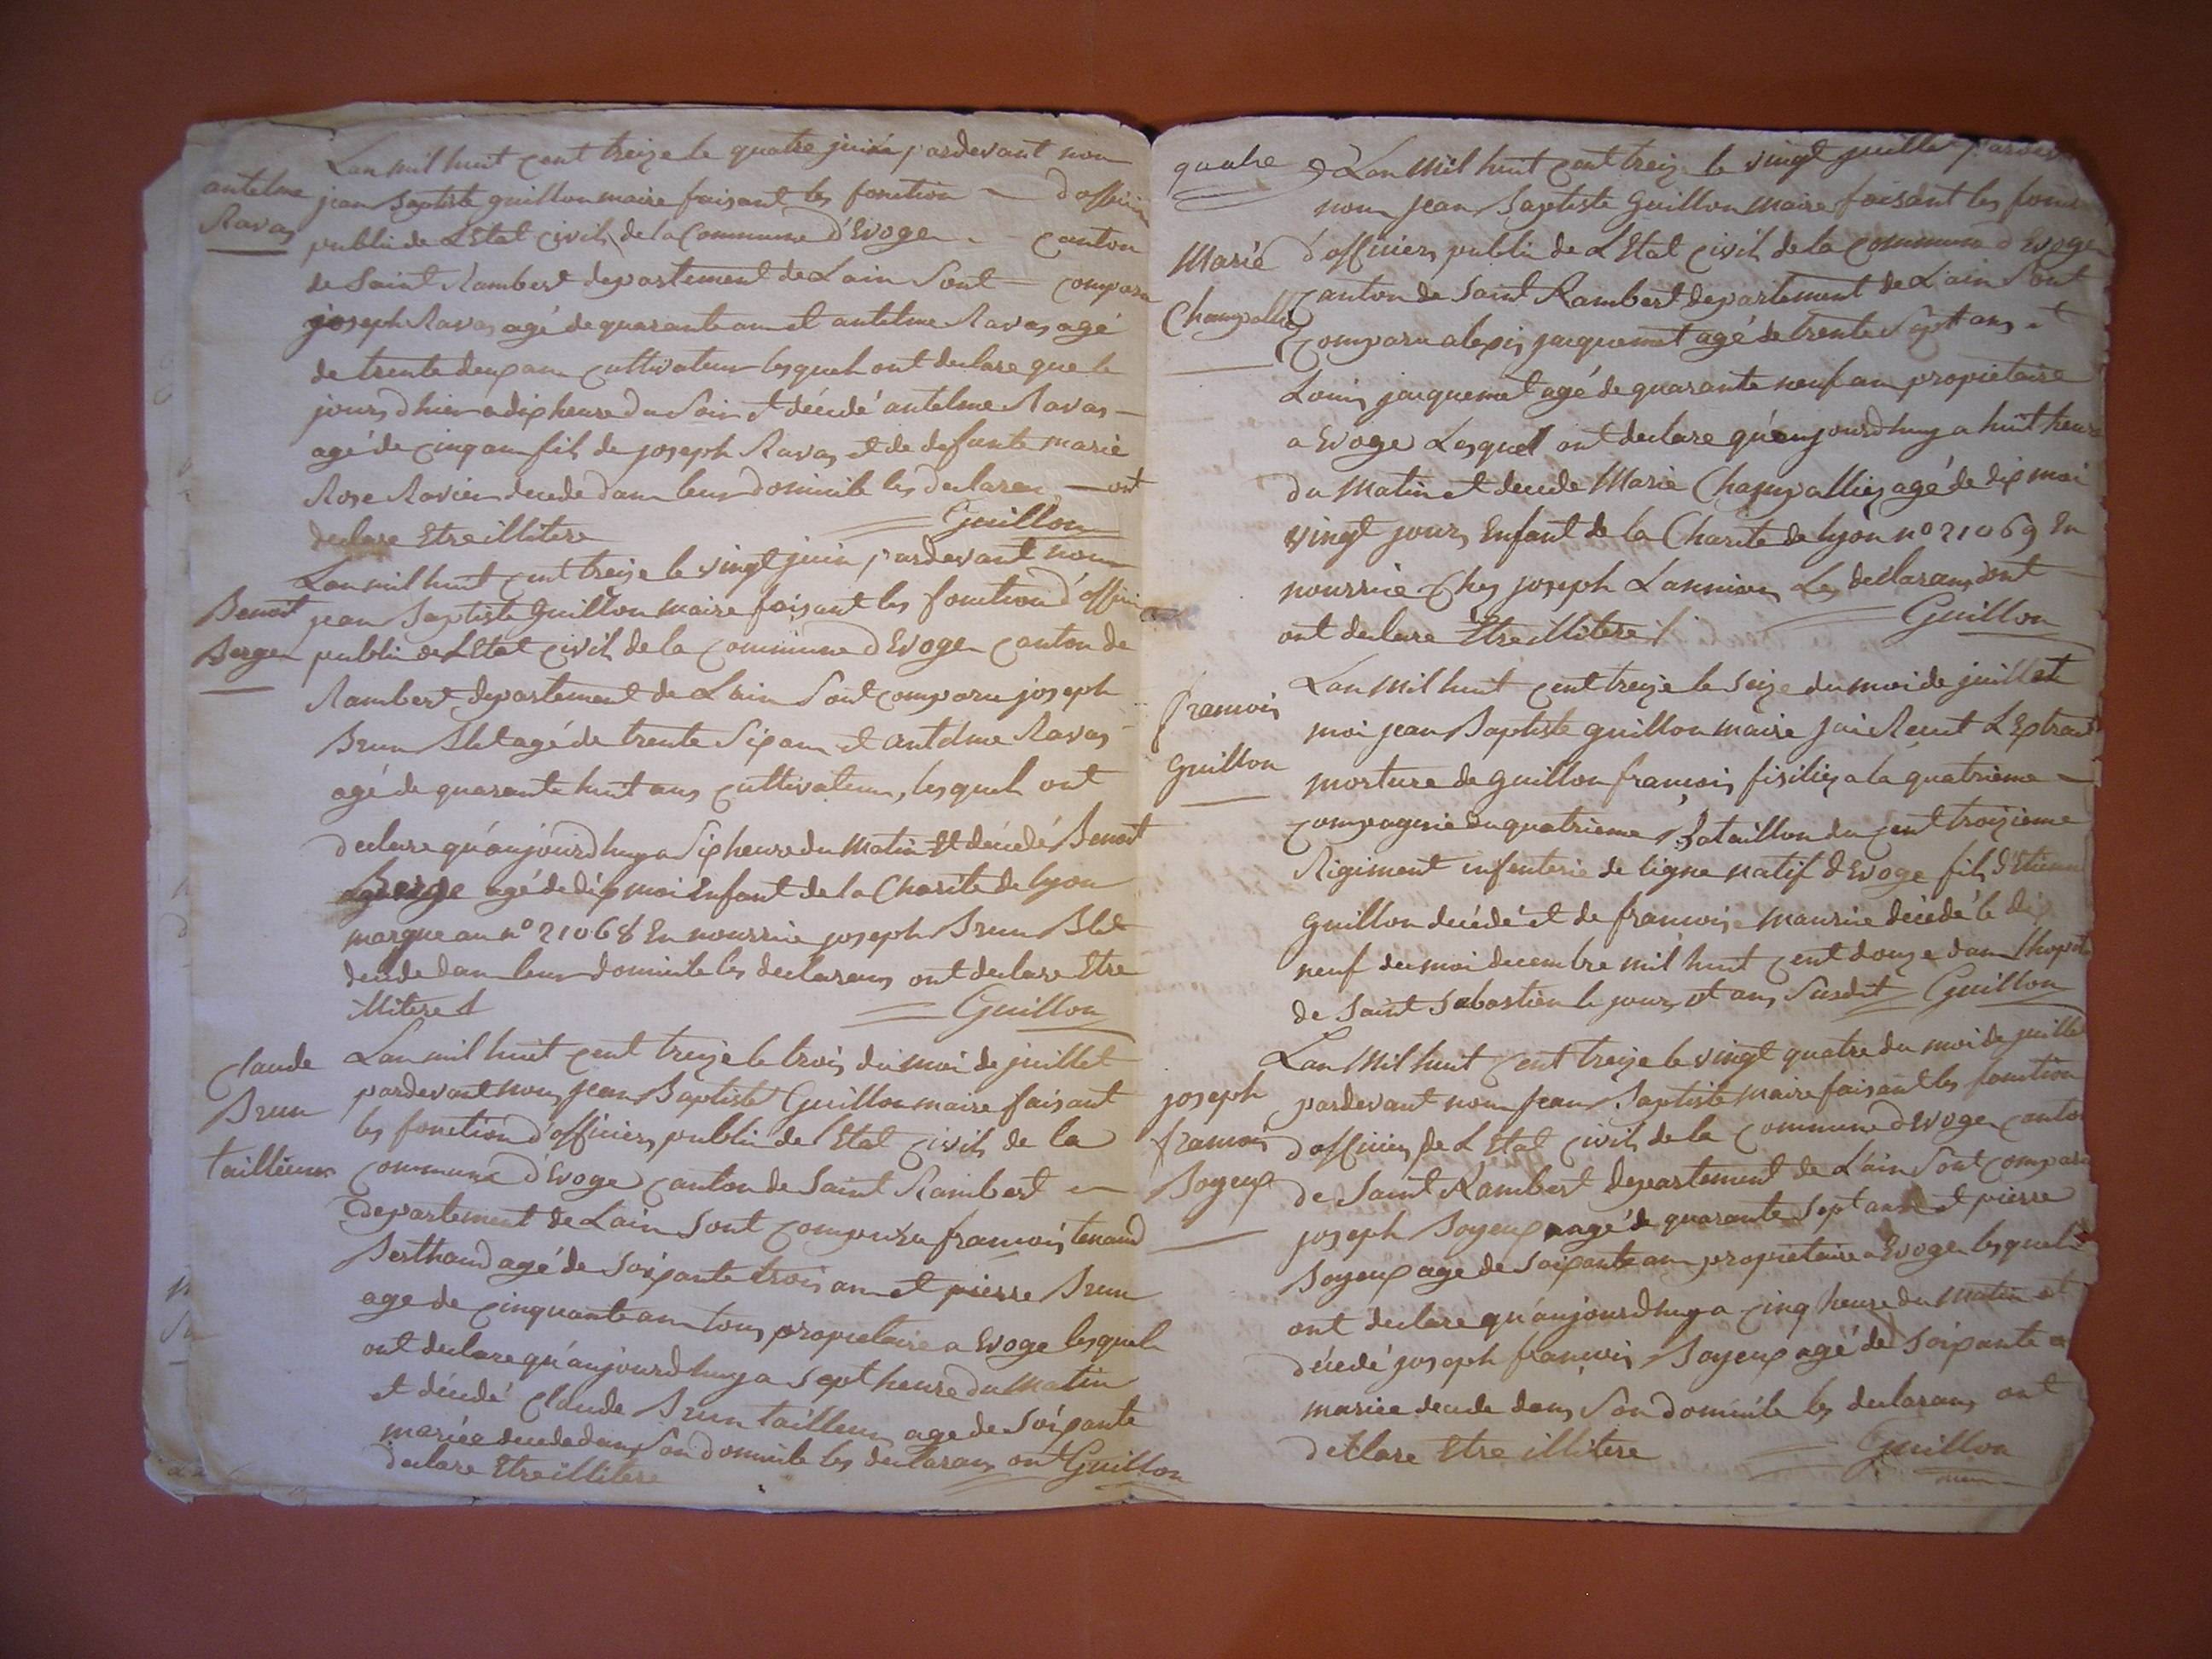 Lan mil huit cent treize le quatre juin pardevant nou
antelme jean Baptiste guillon maire faisant les fonction d'officier
Ravas publi de L'Etat civil de la Commune d'Evoge canton
de Saint Rambert departement de Lain Sont comparu
joseph Ravas agé de quarante an et antelme Ravas agé
de trente deux an cultivateur lesquel ont declare que le
jours d'hier a dix heure du Soir et décédé antelme Ravas
agé de cinq an fils de joseph Ravas et de defunte marie
Rose Ravier decede dans leur domicile les declaran ont
declare Etre illitere Guillon
Lan mil huit cent treize le vingt juin pardevant nou
Benoit jean Baptiste Guillon maire faisant les fonction d'officier
Berger publi de LEtat civil de la commune d'Evoge canton de
Rambert departement de Lain Sont comparu joseph
Brun Blet agé de trente Six an et antelme Ravas
agé de quarante huit ans cultivateur, lesquel ont
declare qu'aujourdhuy a Six heure du Matin Et décédé Benoit
Berge agé de dix moi Enfant de la Charite de lyon
marque au no 21068 En nourrice joseph Brun Blet
decede dan leur domicile les declarans ont declare Etre
illitere Guillon
Claude Lan mil huit cent treize le trois du moi de juillet
Brun pardevant nous jean Baptiste Guillon maire faisant
les fonction d'officiers publi de l'Etat civil de la
tailleur commune d'Evoge canton de Saint Rambert
departement de Lain Sont comparu francois tenand
Berthaud agé de Soixante trois an et pierre Brun
age de cinquante an tous propietaire a Evoge lesquel
ont declare qu'aujourdhuy a Sept heure du Matin
et décédé Claude Brun tailleur age de Soixante
mariée decede dans Son domicile les declarans ont Guillon
declare Etre illitere
quatre Lan Mil huit cent treize le vingt juillet
nou jean Baptiste Guillon Maire faisant les
Marie d'officiers publi de LEtat civil de la commune d'Evoge
Champallier canton de Saint Rambert departement de Lain Sont
comparu alexis jacquemet agé de trente Sept ans et
Louis jacquemet agé de quarante neuf an propietaire
a Evoge Lesquel ont declare qu'aujourdhuy a huit heure
du Matin et decede Marie Champallier agé de dix moi
vingt jours Enfant de la Charite de lyon no 21069 En
nourrice Chez joseph Lannier Les declarans
ont declare Etre illitere Guillon
Lan Mil huit cent treize le Seize du moi de juillet
francois moi jean Baptiste guillon maire jai Recut LExtrait
Guillon morture de guillon francois fisilier a la quatrieme
compagnie du quatrieme Bataillon du cent troizieme
Rigiment infenterie de ligne natif d'Evoge fils d'Etienne
Guillon décédé et de francoise Maurice décédé le dix
neuf du moi decembre mil huit cent douze dans lhopital
de Saint Sebastien le jours et ans Susdit Guillon
Lan Mil huit cent treize le vingt quatre du moi de juillet
joseph pardevant nou jean Baptiste maire faisant les fonction
francois d'officier de LEtat civil de la commune d'Evoge canton
Boyeux de Saint Rambert departement de Lain Sont comparu
joseph Boyeux agé de quarante Sept ans et pierre
Boyeux age de Soixante an propietaire a Evoge lesquel
ont declare qu'aujourdhuy a cinq heure du matin et
décedé joseph francois Boyeux agé de Soixante
mariée decede dans Son domicile les declarans ont
declare Etre illitere Guillon